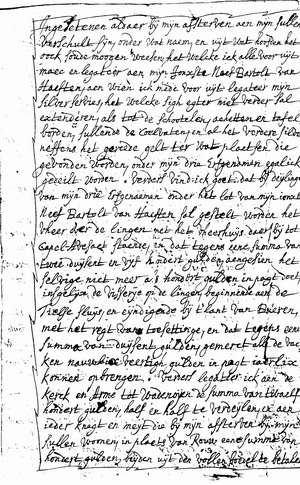 Ingesetenen aldaer bij mijn afsterven aen mijn sullen
verschult sijn, onder wat naem, en uijt wat hoofden het
oock soude moogen weesen, het welcke ick alle voor uijt
maec en legateer aen mijn Neef Bartolt van
Haeften, aen wien ick mede voor uijt legateer mijn
Silver servies, het welcke sigh egter niet verder sal
extenderen, als tot de schootelen, asietten en tafel
borden, sullende de Coelvaten, en al het verdere silver
neffens het gereede gelt ter wat plaetsen die
gevonden worden, onder mijn drie Erfgenamen egaelick
gedeilt worden. Verders vind ick goet, dat bij deijlinge
van mijn drie Erfgenaemen onder het lot van mijn
Neef Bartolt van Haeften sal gestelt worden het
veer over de lingen met het veerhuijs daer bij tot
Capel Avesaet staende, en dat tegens eene summa van
twee duijsent en vijf hondert gulden, aengesien het
selvige niet meer als hondert gulden in pagt doet,
insgelijcx de visserije op de lingen, beginnende aen de
sluijs, en eijndigende bij t lant van Buren,
met het regt van, en dat tegens eene
Summa van duijsent gulden, gemerct als de
ken nauwelix veertigh gulden in pagt iaerlix
konnen opbrengen. Verders legateer ick aen de
kerck en Arme tot Wadenoijen de summa van twaelf
hondert gulden, half en half te verdeijlen, en aen
ieder knegt en meijt die bij mijn afsterven bij mijn
sullen woonen, in plaets van Rouw eene summe van
hondert gulden, buijten uijt den vollen boedel te betalen